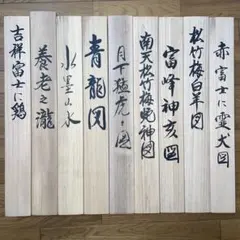 赤富士に霊犬図
松竹梅白羊図
富峰神亥図
南天松竹梅蛇神図
月下猛虎之図
青龍図
水墨山水
養老之瀧
吉祥富士に鶏